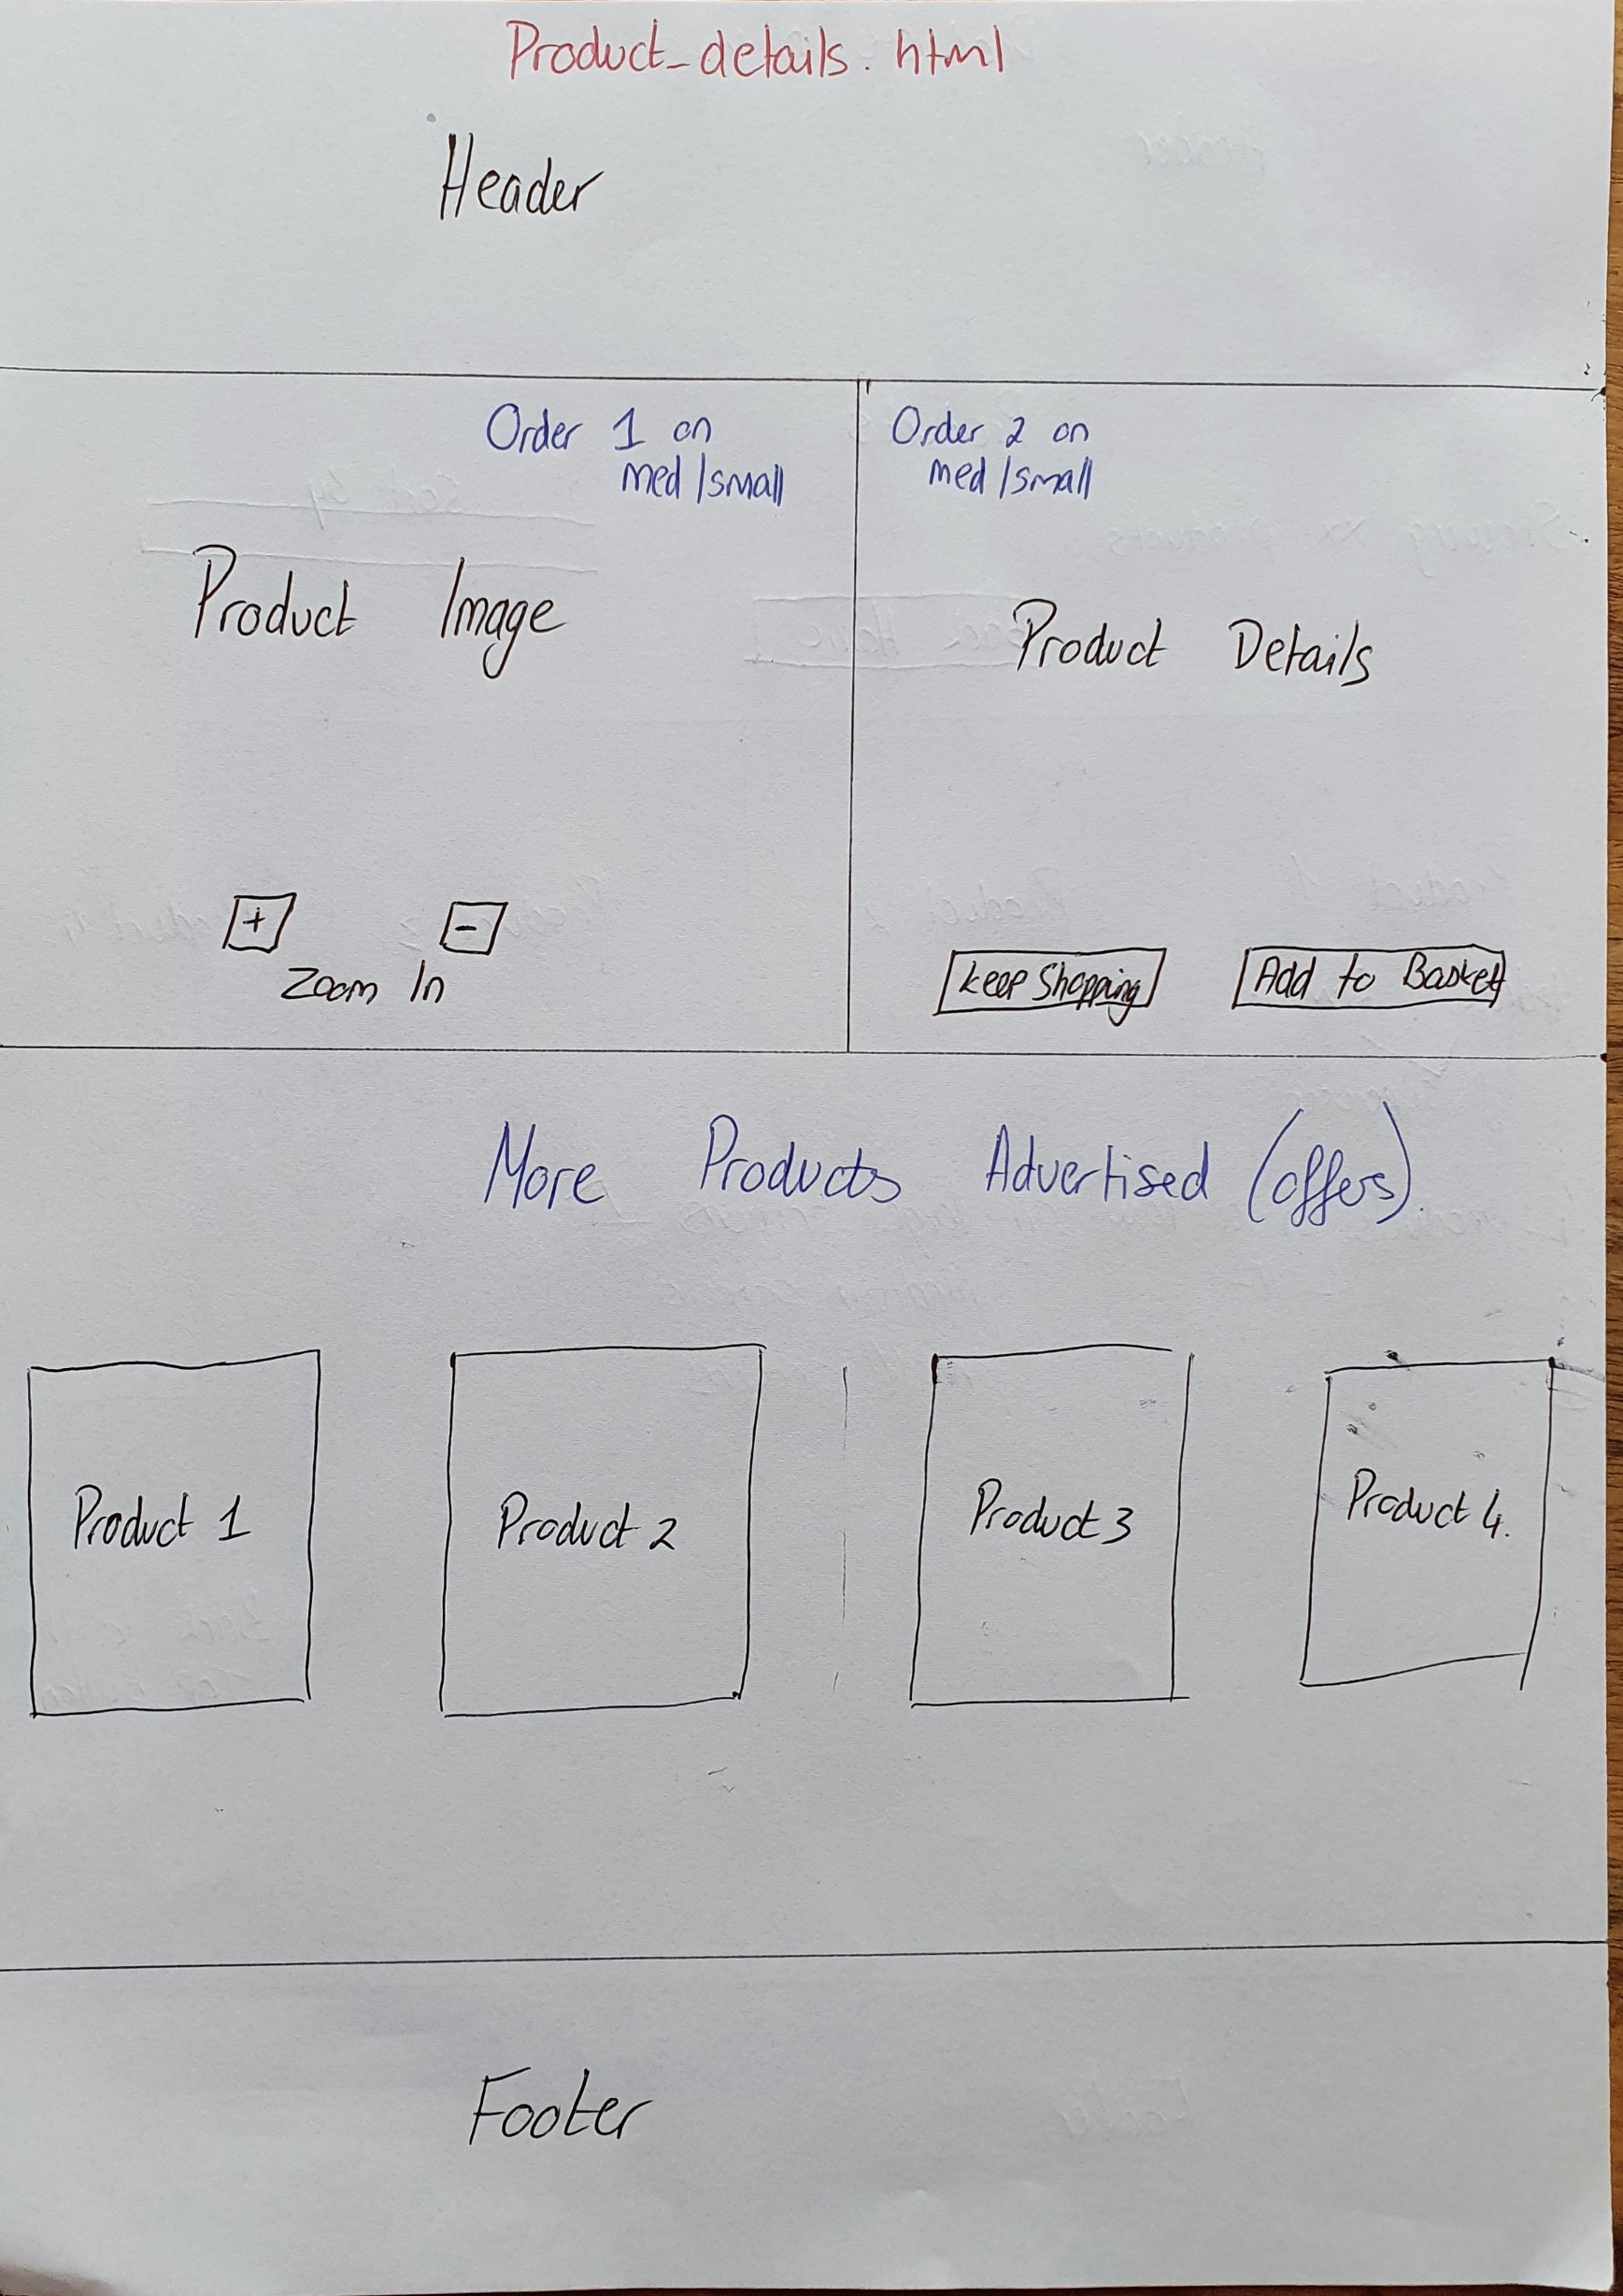 Product_details.html
Header
Order 1 on
med/small
Order 2 on
med/small
Product Image
Product Details
+
-
Zoom In
Keep Shopping
Add to Basket
More Products Advertised (offers).
Product 1
Product 2
Product 3
Product 4.
Footer